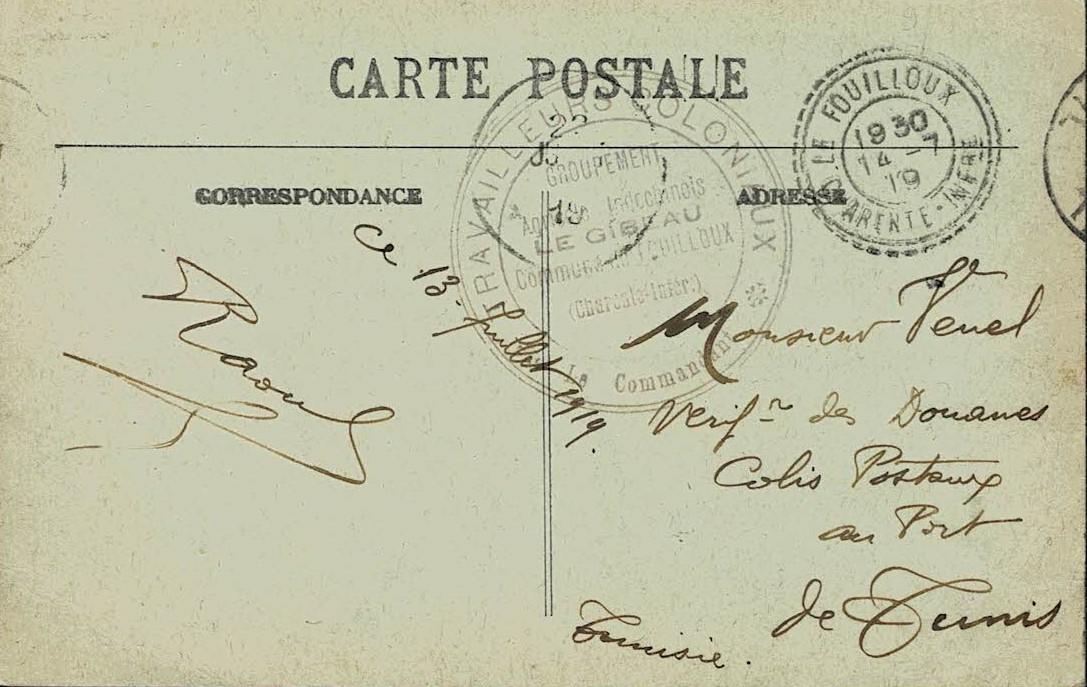 CARTE POSTALE
CORRESPONDANCE
ADRESSE
LE FOUILLOUX
19 30
14 - 7
19
CHARENTE-INFRE
TRAVAILLEURS COLONIAUX
GROUPEMENT
Agricole Indochinois
LE GIBEAU
Commune du FOUILLOUX
(Charente-Infér.)
Le Commandant
22
19
ce 13 Juillet 1919.
Raoul
Monsieur Venel
Verifr des Douanes
Colis Postaux
au Port
de Tunis
Tunisie.